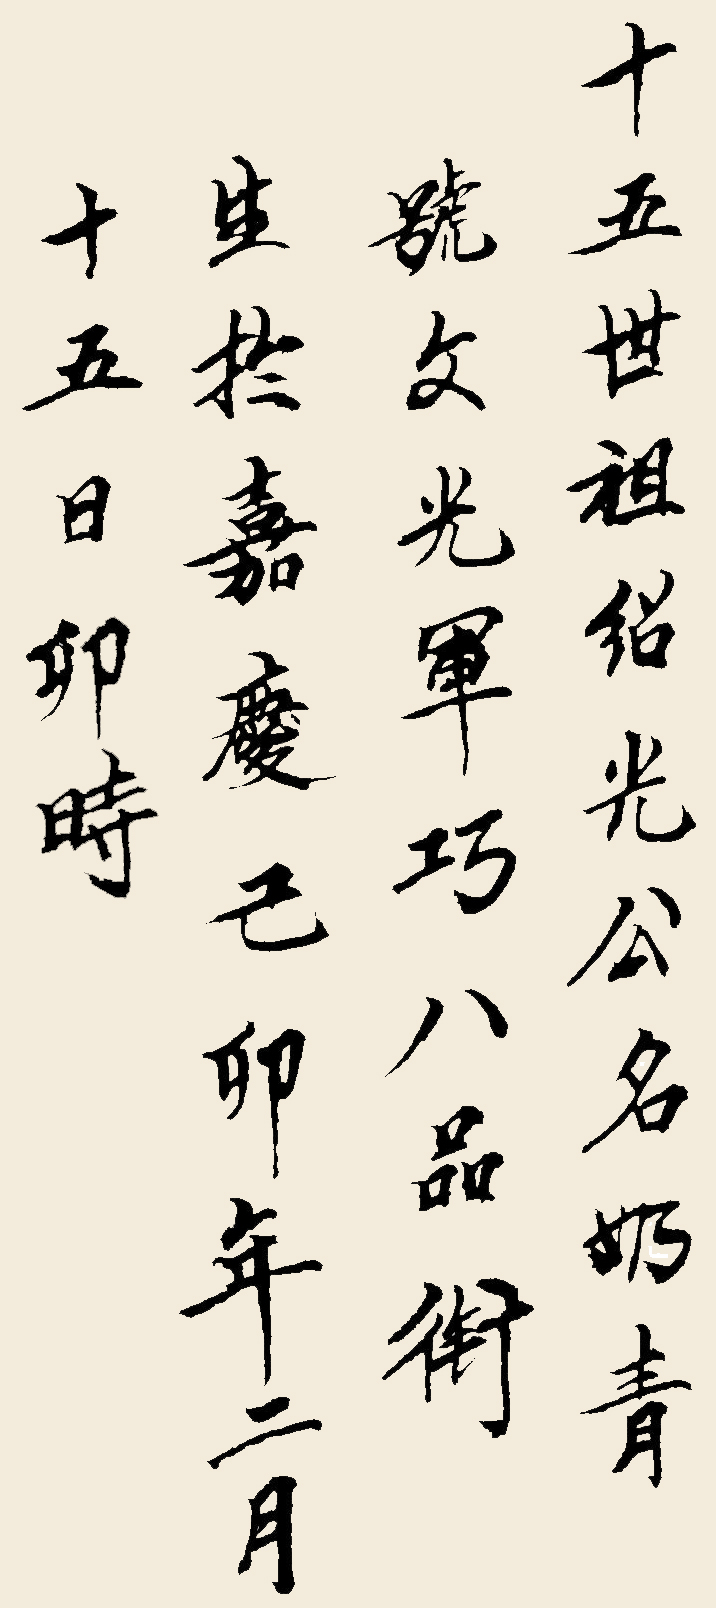 十五世祖紹光公名奶青
號文光軍巧八品銜
生於嘉慶己卯年二月
十五日卯時